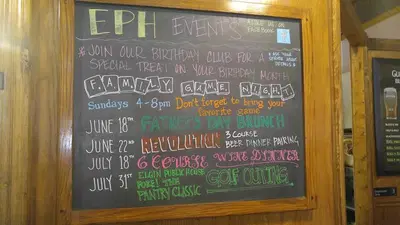 EPH EVENTS
LIKE US ON
FACEBOOK
*JOIN OUR BIRTHDAY CLUB FOR A
SPECIAL TREAT ON YOUR BIRTHDAY MONTH
* ASK YOUR
SERVER
DETAILS
FAMILY GAME NIGHT
Sundays 4-8pm Don't forget to bring your
favorite game
JUNE 18TH FATHER'S DAY BRUNCH
JUNE 22ND REVOLUTION 3 COURSE
BEER DINNER PAIRING
JULY 18TH 6 COURSE WINE DINNER
JULY 31ST ELGIN PUBLIC HOUSE
PANTRY CLASSIC
GOLF OUTING